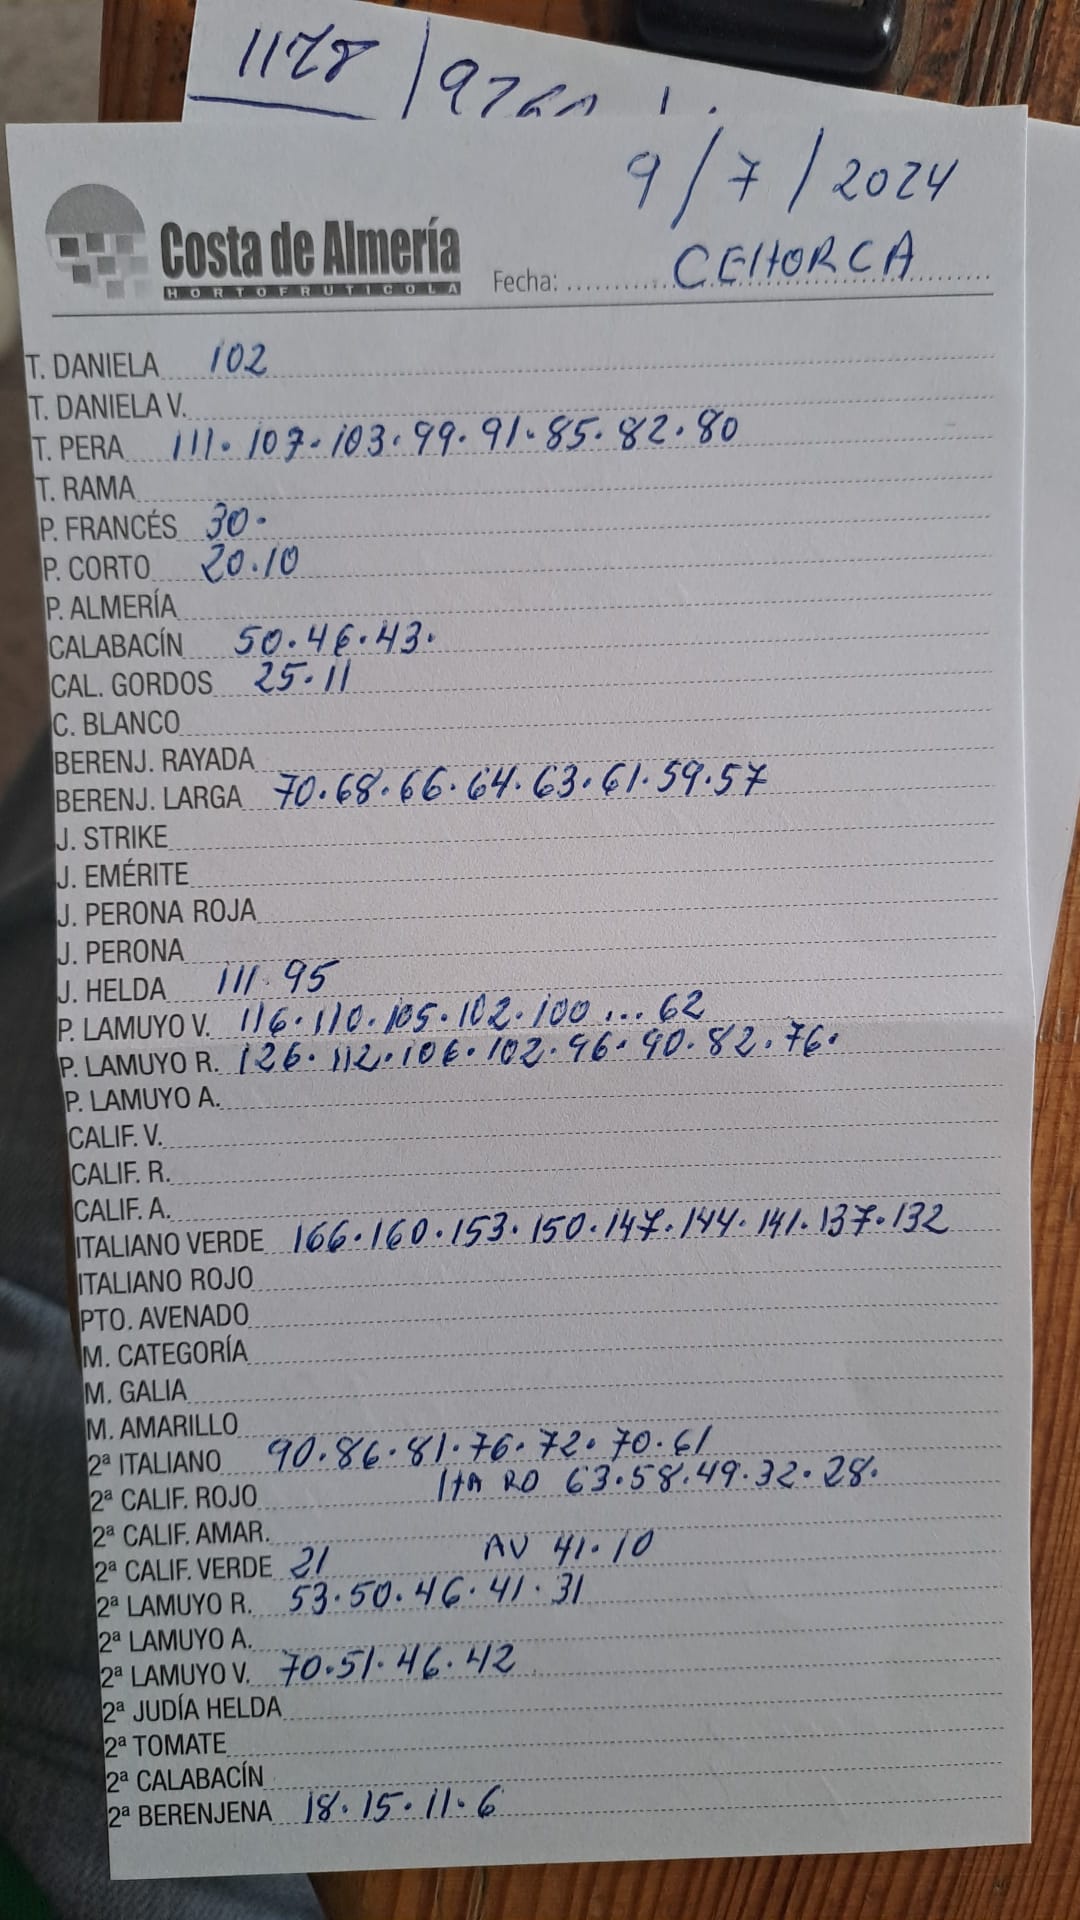 1178
9/7/2024
Costa de Almería
HORTOFRUTICOLA
Fecha: CEHORCA
T. DANIELA 102
T. DANIELA V.
T. PERA 111. 107. 103. 99. 91. 85. 82. 80
T. RAMA
P. FRANCÉS 30.
P. CORTO 20.10
P. ALMERÍA
CALABACÍN 50.46.43.
CAL. GORDOS 25.11
C. BLANCO
BERENJ. RAYADA
BERENJ. LARGA 70.68.66.64.63.61.59.57
J. STRIKE
J. EMÉRITE
J. PERONA ROJA
J. PERONA
J. HELDA 111.95
P. LAMUYO V. 116.110.105.102.100 ... 62
P. LAMUYO R. 126.112.106.102.96.90.82.76.
P. LAMUYO A.
CALIF. V.
CALIF. R.
CALIF. A.
ITALIANO VERDE 166.160.153.150.147.144.141.137.132
ITALIANO ROJO
PTO. AVENADO
M. CATEGORÍA
M. GALIA
M. AMARILLO
2ª ITALIANO 90.86.81.76.72.70.61
2ª CALIF. ROJO ItA RO 63.58.49.32.28.
2ª CALIF. AMAR.
2ª CALIF. VERDE 21 AV 41.10
2ª LAMUYO R. 53.50.46.41.31
2ª LAMUYO A.
2ª LAMUYO V. 70.51.46.42
2ª JUDÍA HELDA
2ª TOMATE
2ª CALABACÍN
2ª BERENJENA 18.15.11.6